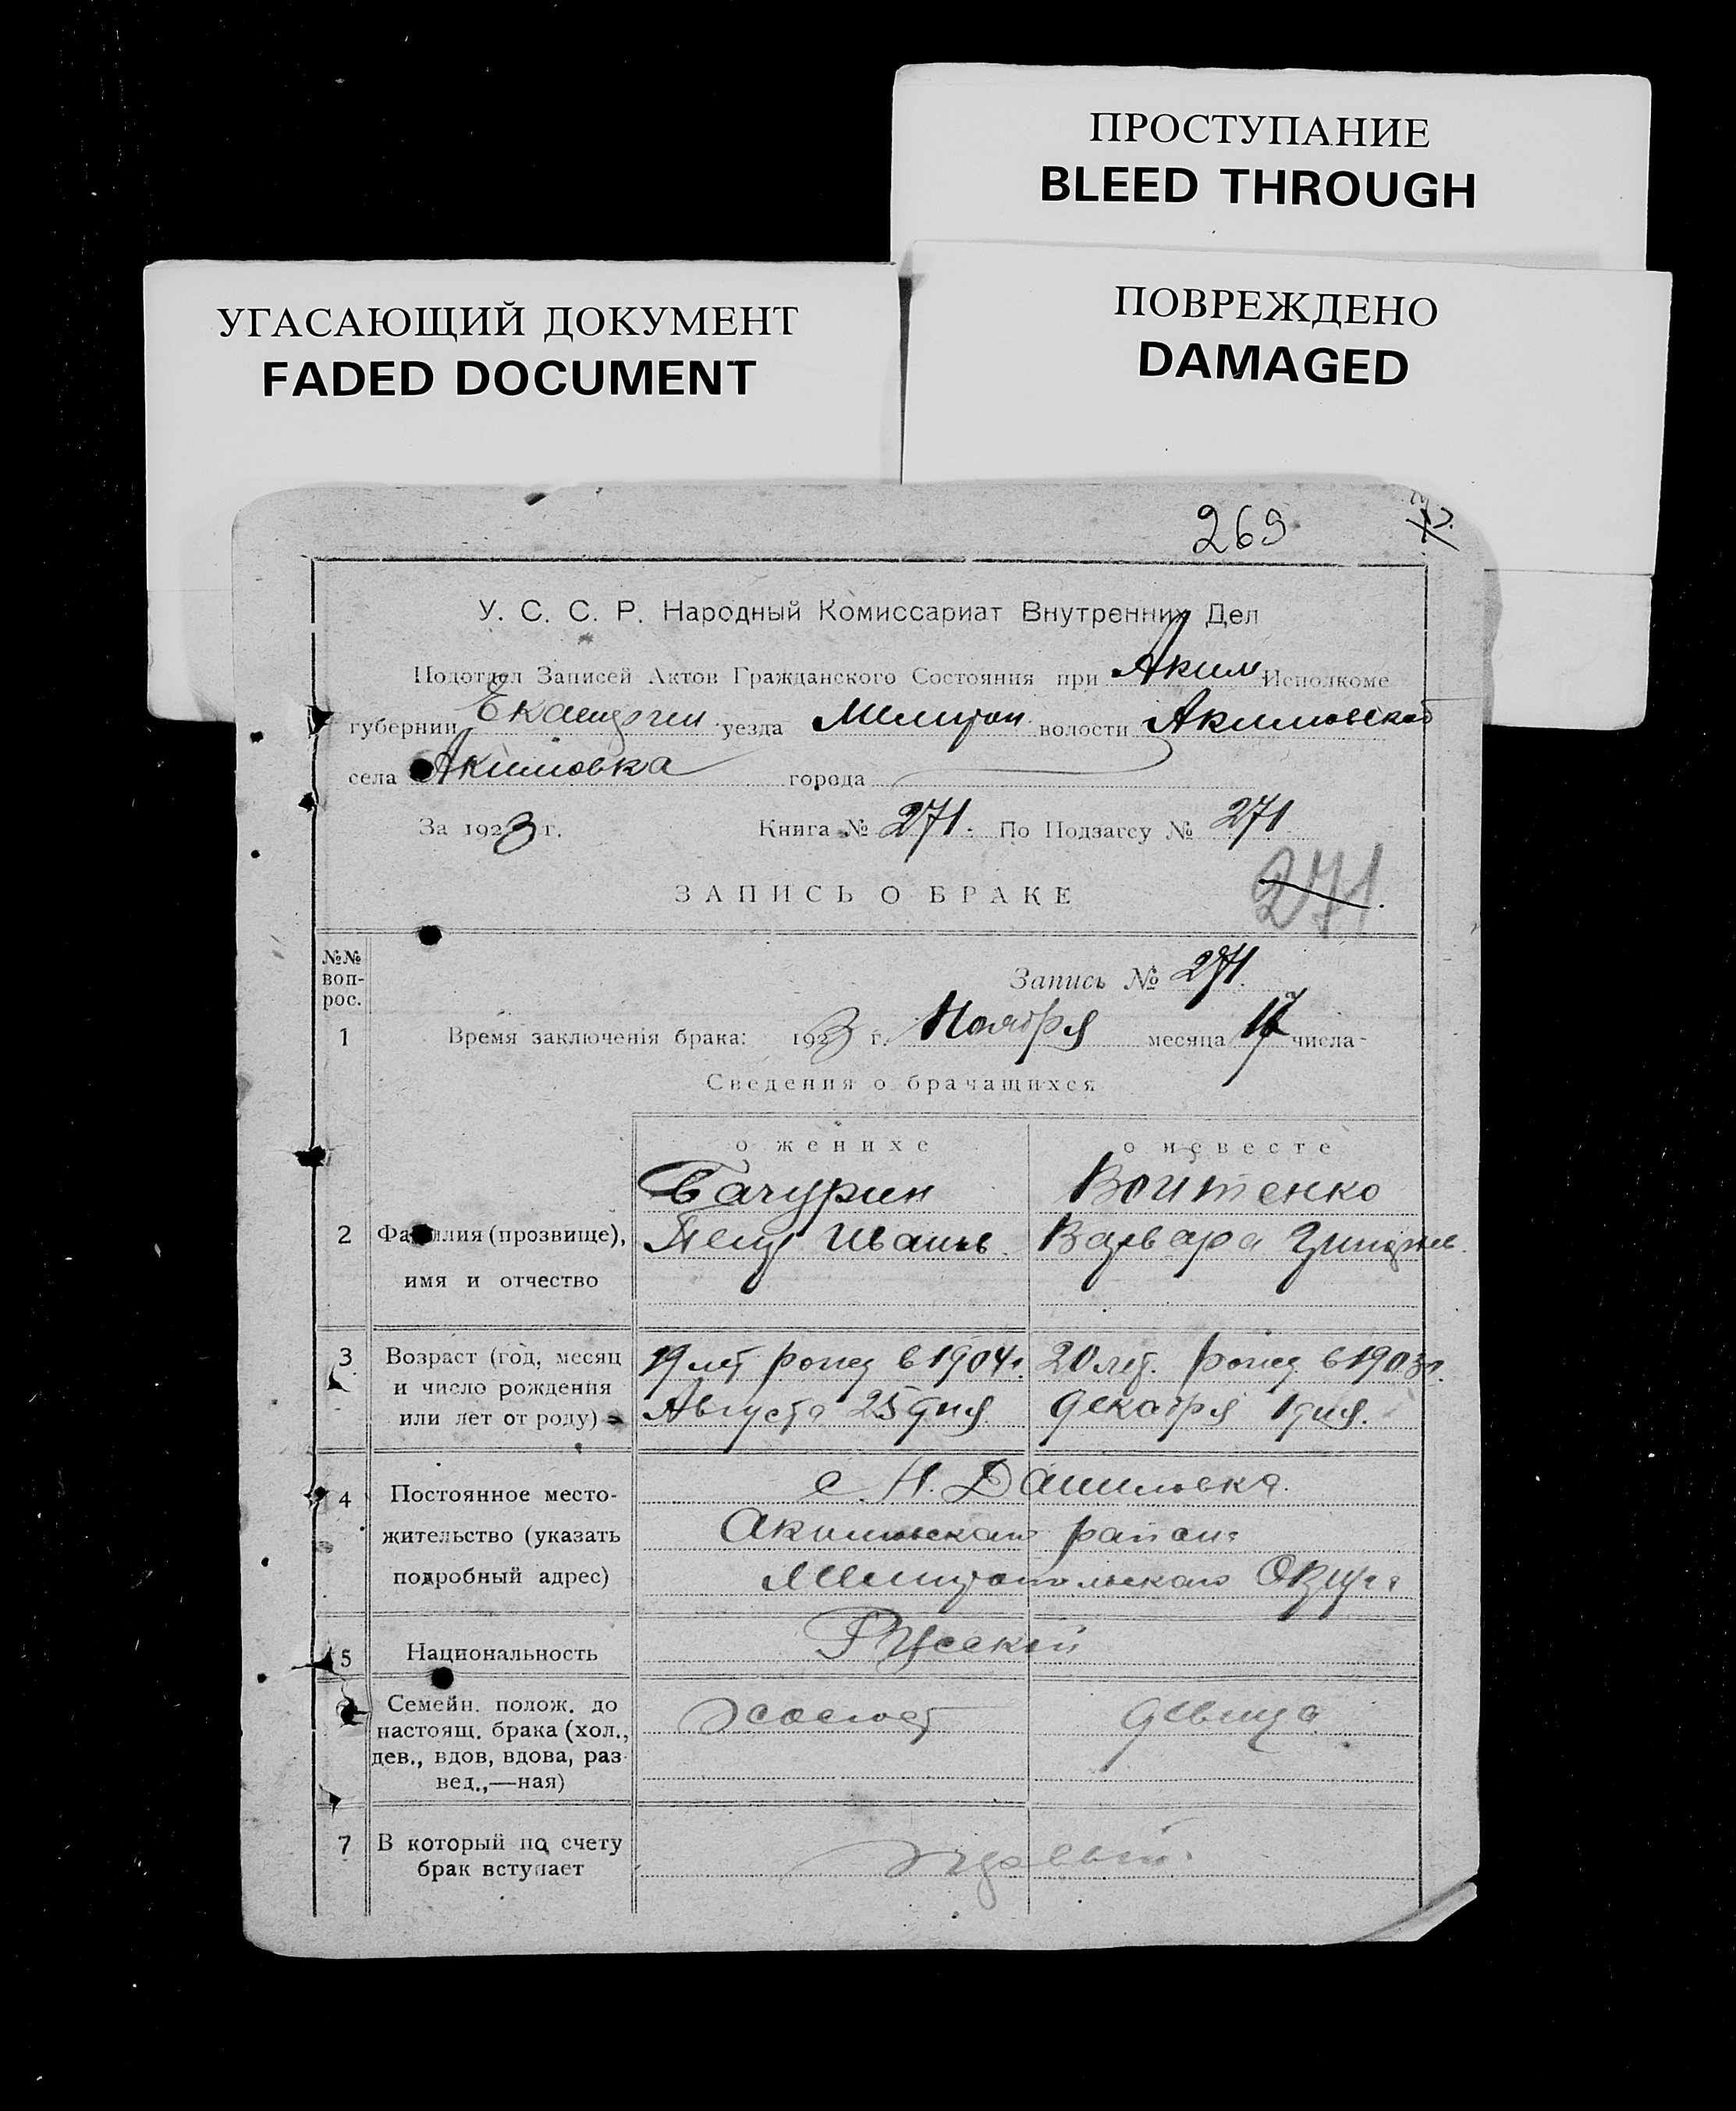 ПРОСТУПАНИЕ
BLEED THROUGH
УГАСАЮЩИЙ ДОКУМЕНТ
FADED DOCUMENT
ПОВРЕЖДЕНО
DAMAGED
269
У. С. С. Р. Народный Комиссариат Внутренних Дел
Подотдел Записей Актов Гражданского Состояния при Аким Исполкоме
губернии уезда Мелитоп. волости Акимовской
села Акимовка города
За 1923 г. Книга № 271. По Подзагсу № 271
ЗАПИСЬ О БРАКЕ 271
№№ воп-рос.
Запись № 271.
1 Время заключенія брака: 1923 г. Ноября месяца 17 числа
Сведения о брачащихся
о женихе о невесте
Бачурин Войтенко
2 Фамилия (прозвище), Петр Иванов. Варвара
имя и отчество
3 Возраст (год, месяц 19 лет рожд в 1904 г. 20 лет. рожд в 1903 г.
и число рождения
или лет от роду) Августа 25 дня Декабря 1 дня.
4 Постоянное место- с. Н. Даниловка
жительство (указать Акимовского района
подробный адрес) Мелитопольского Округа
5 Национальность Русский
6 Семейн. полож. до холост девица
настоящ. брака (хол.,
дев., вдов, вдова, раз-
вед.,—ная)
7 В который по счету
брак вступает